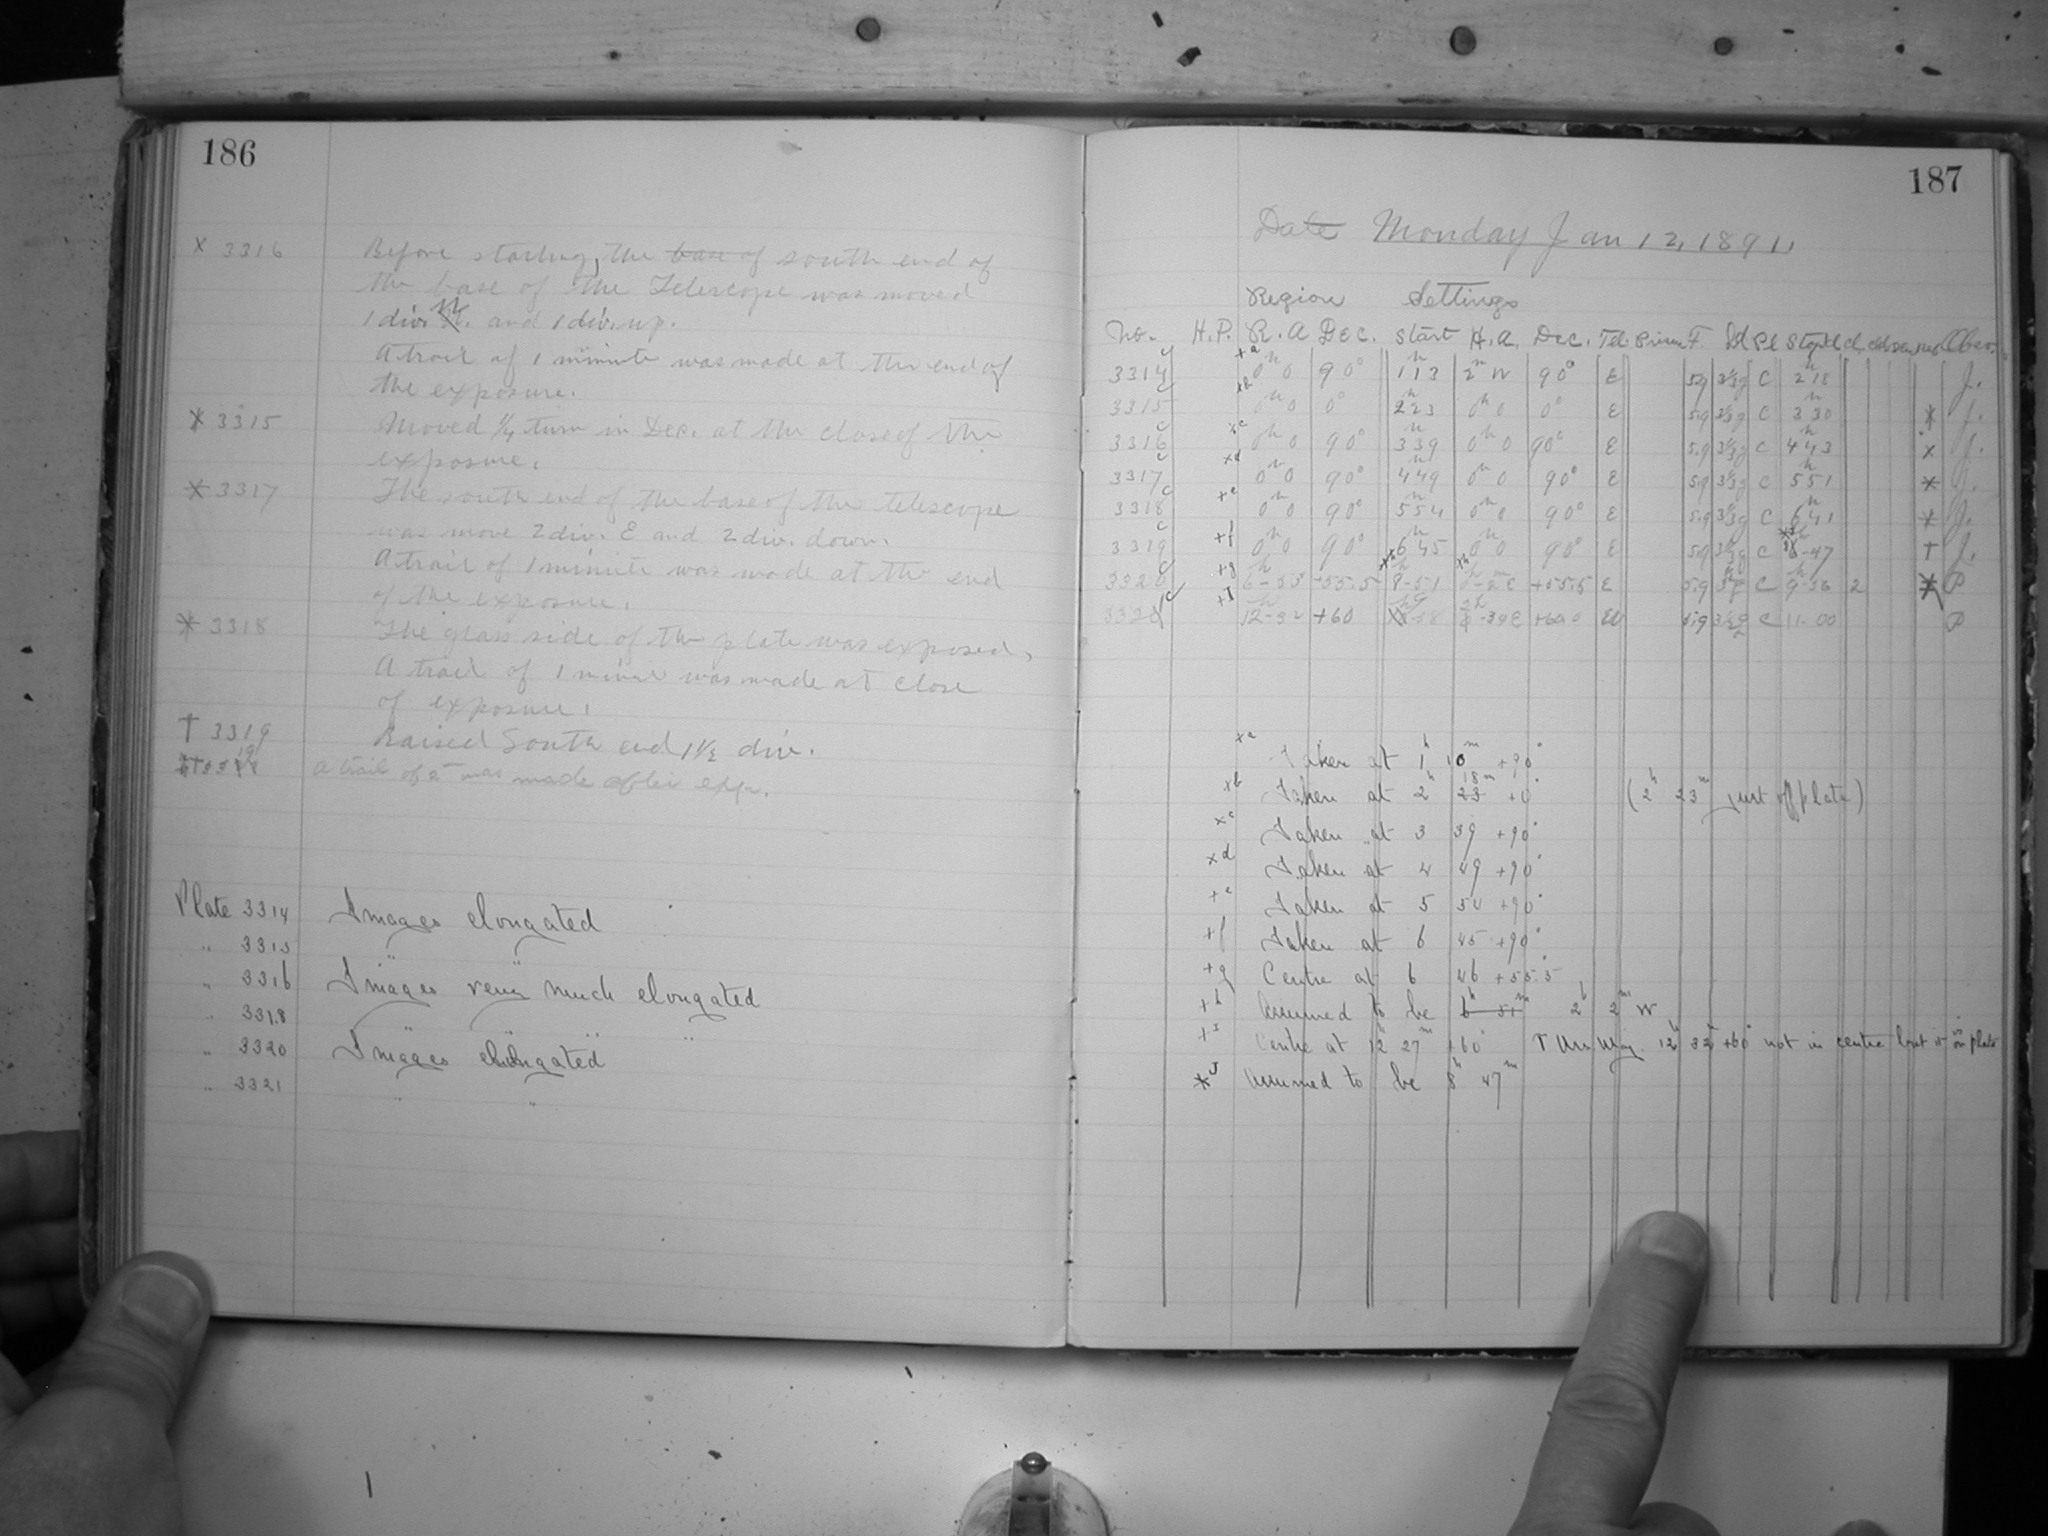 186
x 3316 Before starting, the base of south end of
the base of the Telescope was moved
1 div. N. and 1 div. up.
A trail of 1 minute was made at the end of
the exposure.
* 3315 Moved 1/4 turn in Dec. at the close of the
exposure.
* 3317 The south end of the base of the telescope
was move 2 div. E and 2 div. down.
A trail of 1 minute was made at the end
of the exposure.
* 3318 The glass side of the plate was exposed.
A trail of 1 minute was made at close
of exposure.
† 3319 Raised South end 1 1/2 div.
a trail of 2m was made after exp.
Plate 3314 Images elongated
" 3315 " "
" 3316 Images very much elongated
" 3318 " " "
" 3320 Images elongated
" 3321 " "
187
Date Monday Jan 12, 1891.
Region Settings
No. H.P. R.A Dec. Start H.A. Dec. Tel. F. Pl Obser.
3314 0h 0 90° 1h 13 2m W 90° E 5.9 C 2h 18 J.
3315 0h 0 0° 2h 23 0h 0 0° E 5.9 C 3h 30 * J.
3316 0h 0 90° 3h 39 0h 0 90° E 5.9 C 4h 43 x J.
3317 0h 0 90° 4h 49 0h 0 90° E 5.9 C 5h 51 * J.
3318 0h 0 90° 5h 54 0h 0 90° E 5.9 C 6h 41 * J.
3319 0h 0 90° 6h 45 0h 0 90° E 5.9 C 8-47 † J.
3320 +55.5 8-51 +55.5 E 5.9 C 9-56 2 * P
12-32 +60 -39E +60 5.9 C 11-00 P
xa Taken at 1h 10m +90°
xb Taken at 2h 23 18m +0° (2h 23m just off plate)
xc Taken at 3 39 +90°
xd Taken at 4 49 +90°
+e Taken at 5 54 +90°
+f Taken at 6 45 +90°
+g Centre at 6 46 +55.5
+h Assumed to be 6h 51m 2h 2m W
Centre at 12h 27m +60° 12h 32m +60° not in centre but it is on plate
*J Assumed to be 8h 47m